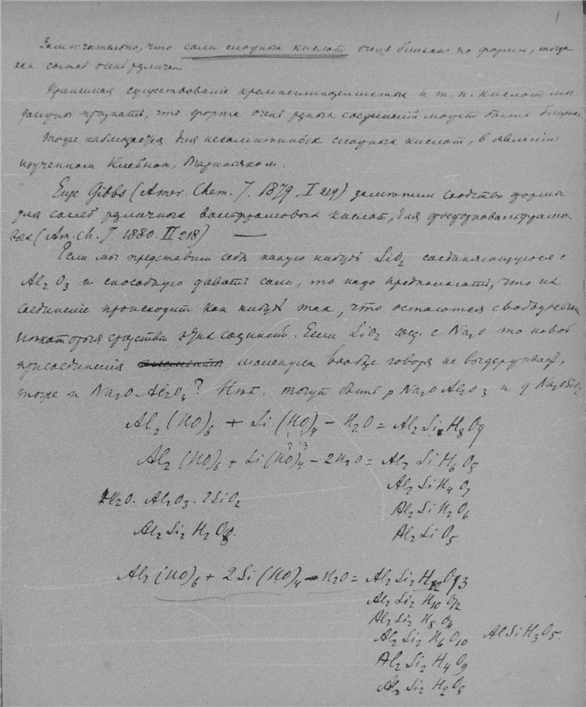 1
Замечательно, что соли сложных кислот очень близки по форме, тогда
как состав очень различен.
существование кремневольфрамистых и т. п. кислот мы
должны признать, что форма очень разных соединений может быть близка.
Тоже наблюдается для сложных кислот, в явлении
изученном Клейном, Мариньяком.
Еще Gibbs (Amer. Chem. J. 1879. I 219) заметил сходство формы
для солей различных вольфрамовых кислот, для фосфорновольфрамо
вых (Am. Ch. J. 1880. II 218) —
Если мы представим себе какую нибудь SiO2 соединяющуюся с
Al2O3 и способную давать соли, то надо предполагать, что их
соединение происходит как нибудь так, что остаются свободными
некоторыя сродства их соединений. Если SiO2 соед. с Na2O то новой
присоединения молекула вообще говоря не выдерживает,
тоже и Na2O Al2O3? Нет. могут быть p Na2O Al2O3 и q Na2O SiO2
Al2(HO)6 + Si(HO)4 – H2O = Al2SiH8O9
Al2(HO)6 + Si(HO)4 – 2H2O = Al2SiH6O8
Al2SiH4O7
H2O. Al2O3. 2SiO2 Al2SiH2O6
Al2Si2H2O8. Al2SiO5
Al2(HO)6 + 2Si(HO)4 – H2O = Al2Si2H12O13
Al2Si2H10O12
Al2Si2H8O11
Al2Si2H6O10 AlSiH3O5
Al2Si2H4O9
Al2Si2H2O8